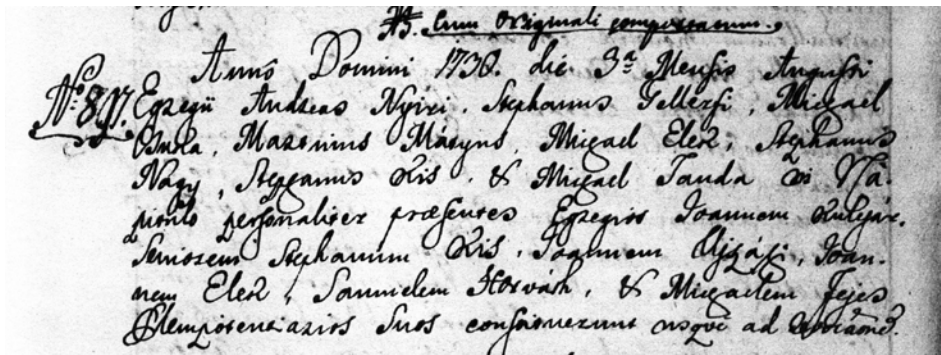 NB. Cum Originali comportatum.
Anno Domini 1738. die 3a Mensis Augusti
No. 817. Egregii Andreas Nyiri, Stephanus Gellerfi, Michael
Martinus Mátyus, Michael Elek, Stephanus
Nagy, Stephanus Kis, & Michael Tanda in Ca-
pitulo personaliter præsentes Egregios Joannem
Seniorem Stephanum Kis, Joannem Ujházi, Joan-
nem Elek, Samuelem Horváth, & Michaelem Fejes
Plenipotentiarios Suos constituerunt usqve ad